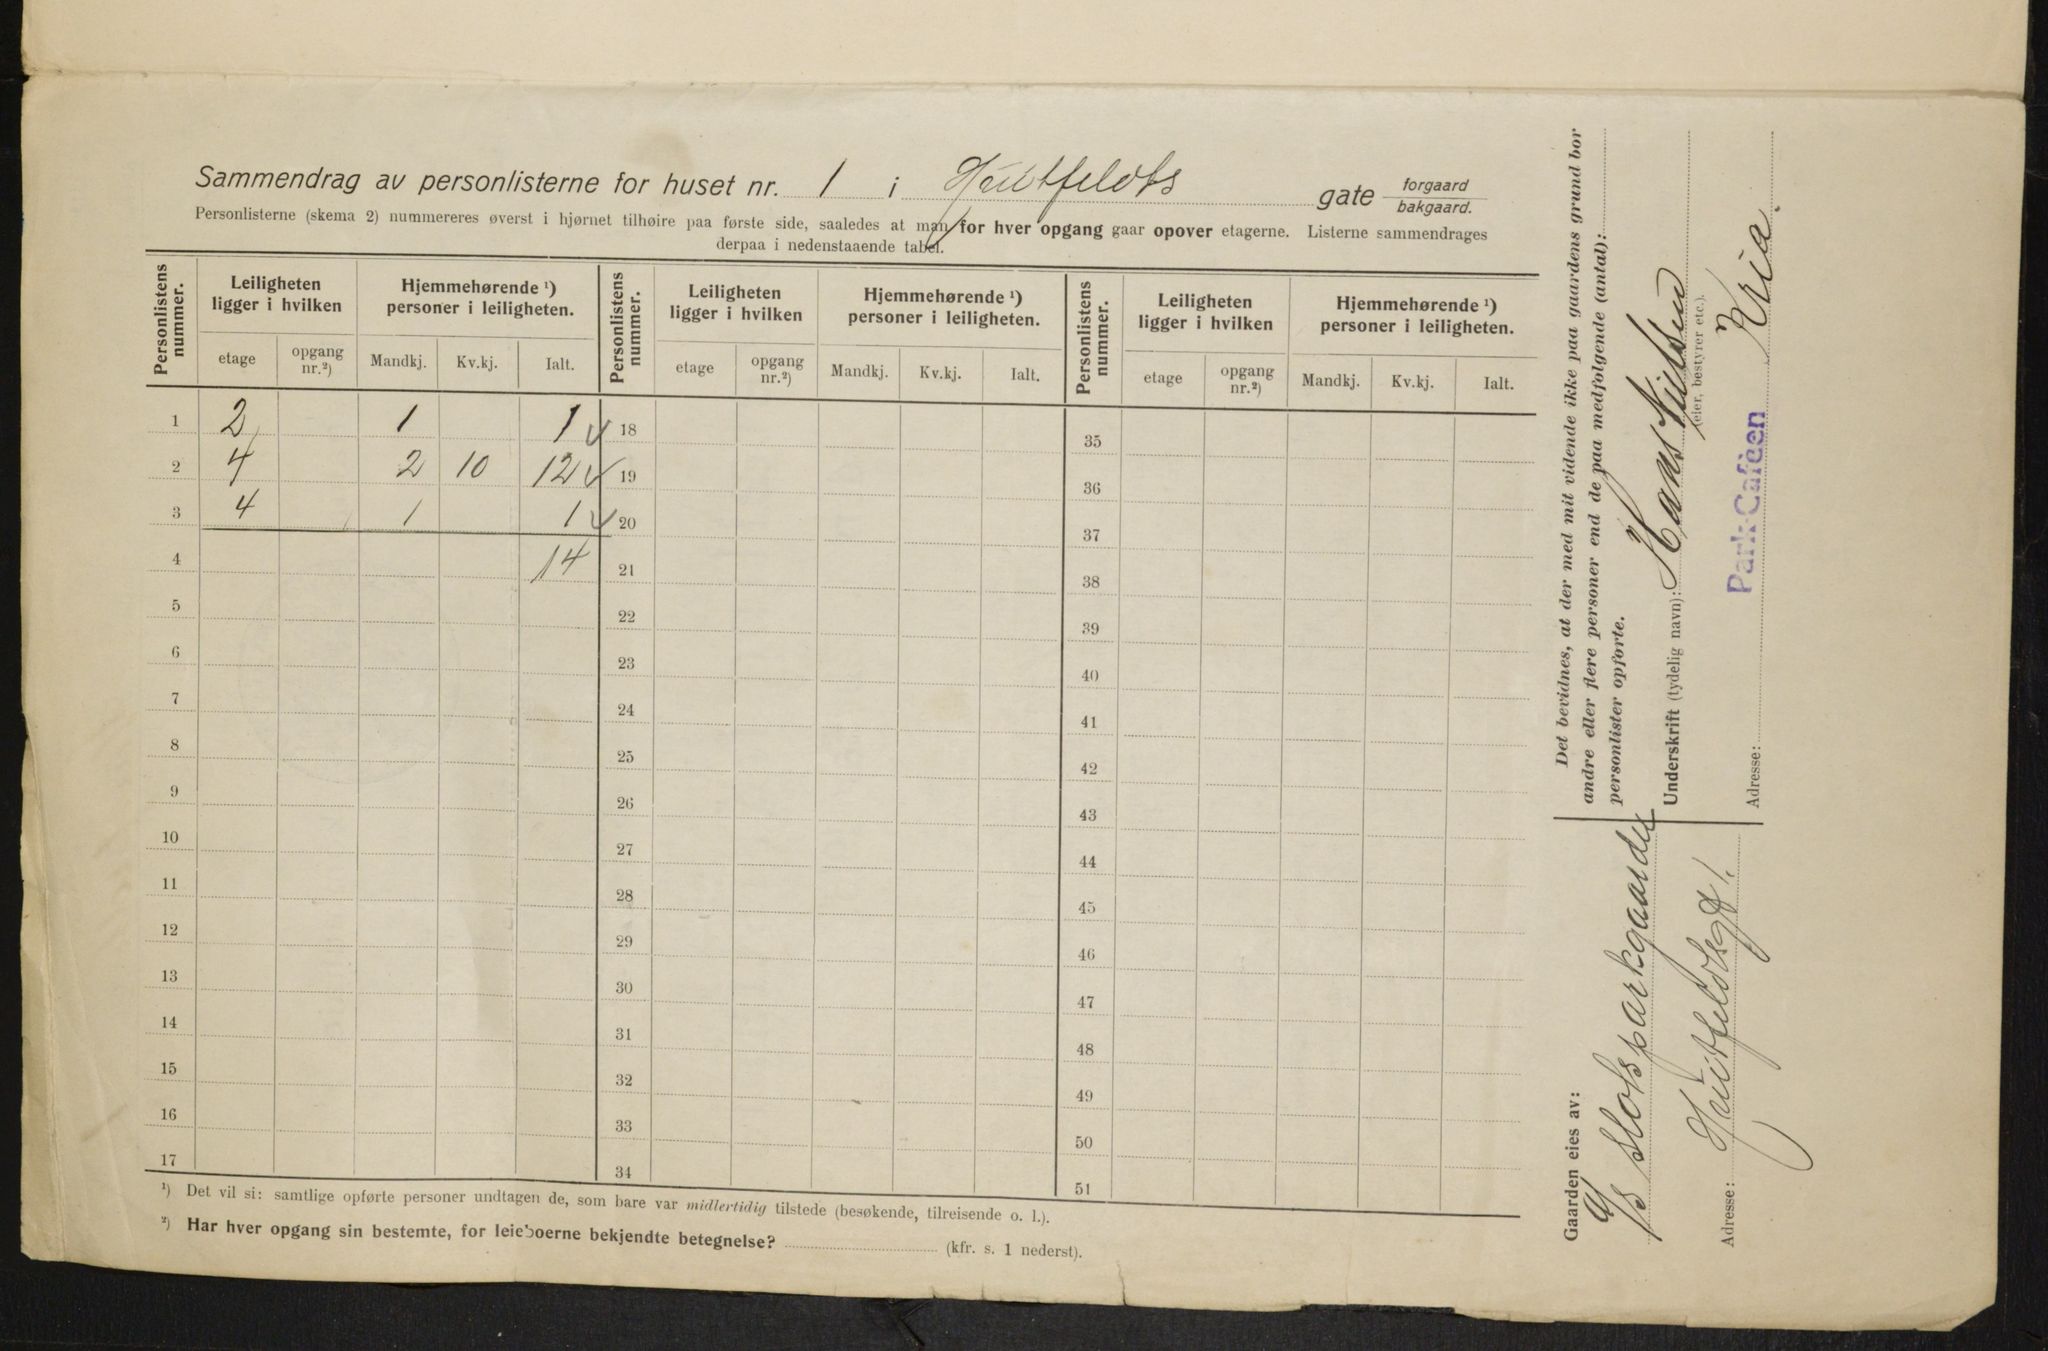 Sammendrag av personlisterne for huset nr. 1 i Huitfeldts gate forgaard
bakgaard.
Personlisterne (skema 2) nummereres øverst i hjørnet tilhøire paa første side, saaledes at man for hver opgang gaar opover etagerne. Listerne sammendrages
derpaa i nedenstaaende tabel.
Personlistens nummer. Leiligheten ligger i hvilken Hjemmehørende ¹) personer i leiligheten. Personlistens nummer. Leiligheten ligger i hvilken Hjemmehørende ¹) personer i leiligheten. Personlistens nummer. Leiligheten ligger i hvilken Hjemmehørende ¹) personer i leiligheten.
etage opgang nr.²) Mandkj. Kv.kj. Ialt. etage opgang nr.²) Mandkj. Kv.kj. Ialt. etage opgang nr.²) Mandkj. Kv.kj. Ialt.
1 2 1 1 18 35
2 4 2 10 12 19 36
3 4 1 1 20 37
4 14 21 38
5 22 39
6 23 40
7 24 41
8 25 42
9 26 43
10 27 44
11 28 45
12 29 46
13 30 47
14 31 48
15 32 49
16 33 50
17 34 51
¹) Det vil si: samtlige opførte personer undtagen de, som bare var midlertidig tilstede (besøkende, tilreisende o. l.).
²) Har hver opgang sin bestemte, for leieboerne bekjendte betegnelse? (kfr. s. 1 nederst).
Det bevidnes, at der med mit vidende ikke paa gaardens grund bor
andre eller flere personer end de paa medfølgende (antal):
personlister opførte.
Underskrift (tydelig navn): Hans Nilssen
(eier, bestyrer etc.).
Park-Cafèen Kria.
Adresse:
Gaarden eies av:
A/S Slotsparkgaarden
Huitfeldtsgt 1.
Adresse: